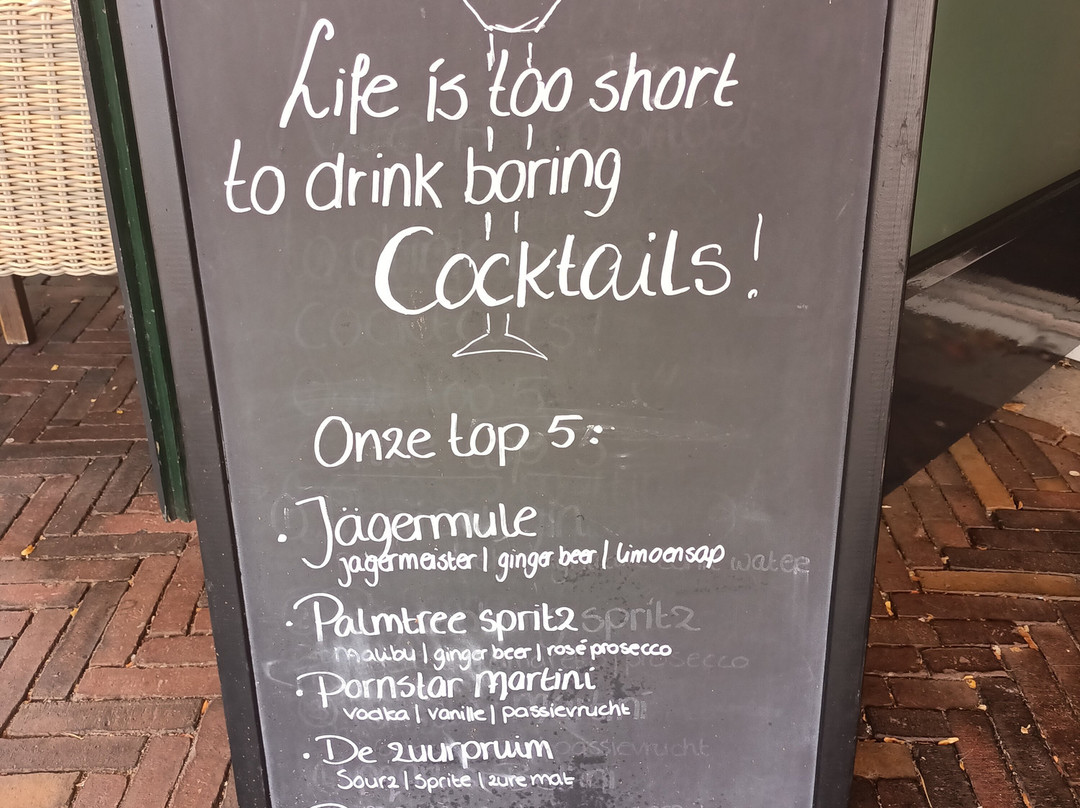 Life is too short
to drink boring
Cocktails!
Onze top 5:
• Jägermule
jägermeister | ginger beer | limoensap
• Palmtree spritz
malibu | ginger beer | rosé prosecco
• Pornstar Martini
vodka | vanille | passievrucht
• De zuurpruim
Sourz | Sprite | zure mat